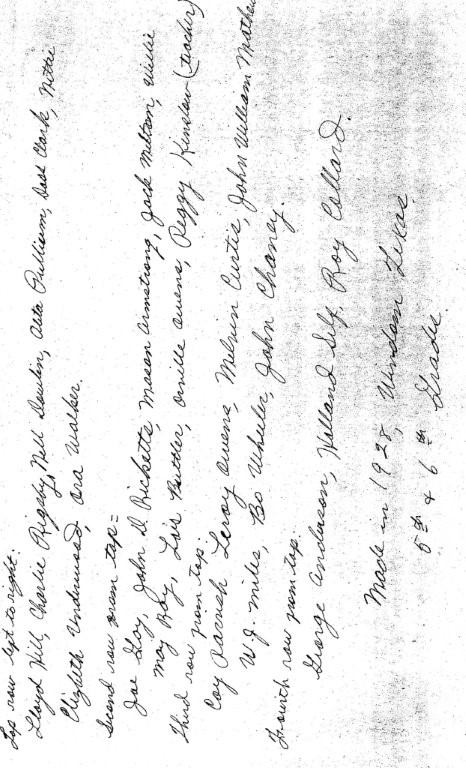 Top row left to right.
Lloyd Hill, Charlie Rigsby, Nell Dawkin, Oeta Pulliam, Clark, Nettie
Elizabeth Underwood, Ora Walker.
Second row from top =
Joe Goy, John D. Ricketts, Mason Armstrong, Jack Melson, Willie
May Roy, Lois Pettler, Orville Owens, Peggy Kinslow (teacher)
Third row from top.
Coy Parrish Leroy Owens, Melvin Curtis, John William
W.J. Miles, Bo Wheeler, John Chaney.
Fourth row from top.
George Anderson, Holland Self, Roy Collard.
Made in 1928, Windom Texas
5th & 6th Grades